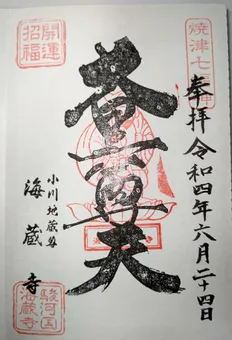 焼津七福神
奉拝 令和四年六月二十四日
尊天
開運
招福
小川地蔵尊
海蔵寺
駿河国
海蔵寺